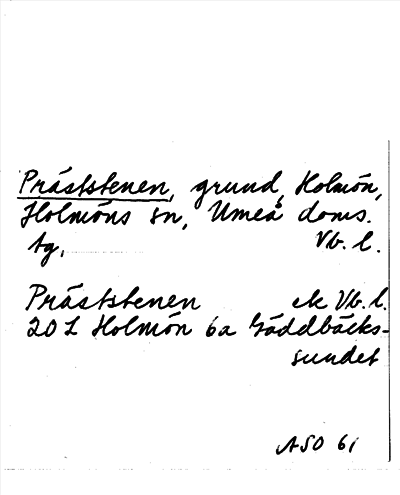 Präststenen, grund, Holmön,
Holmöns sn, Umeå doms.
tg, Vb. l.
Präststenen ek Vb. l.
20 L Holmön 6a Gäddbäcks-
sundet
ASO 61